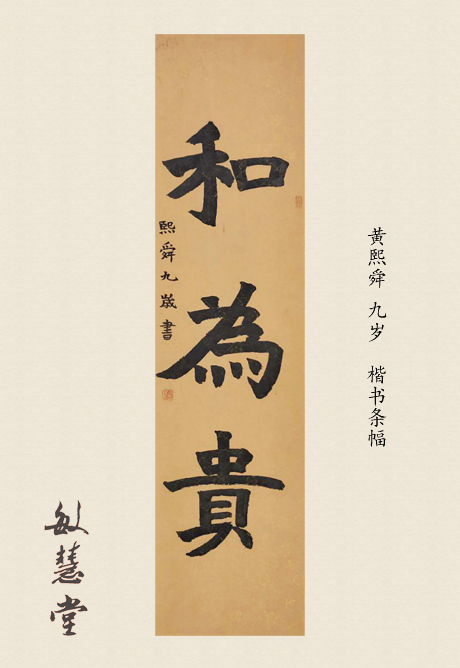 和為貴
熙舜九歲書
黄熙舜 九岁 楷书条幅
敏慧堂